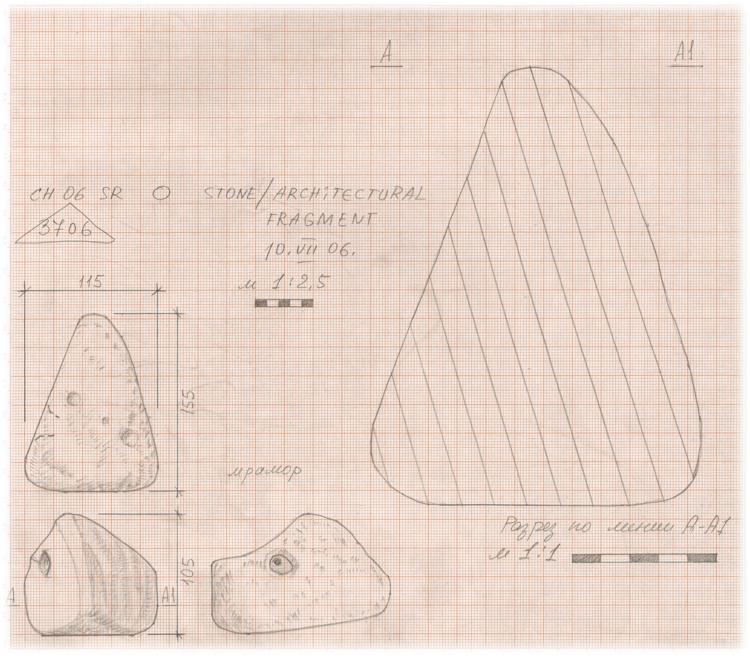 A
A1
CH 06 SR O STONE/ARCHITECTURAL
FRAGMENT
3706
10.VII 06.
м 1:2,5
115
155
мрамор
105
A
A1
Разрез по линии А-А1
м 1:1